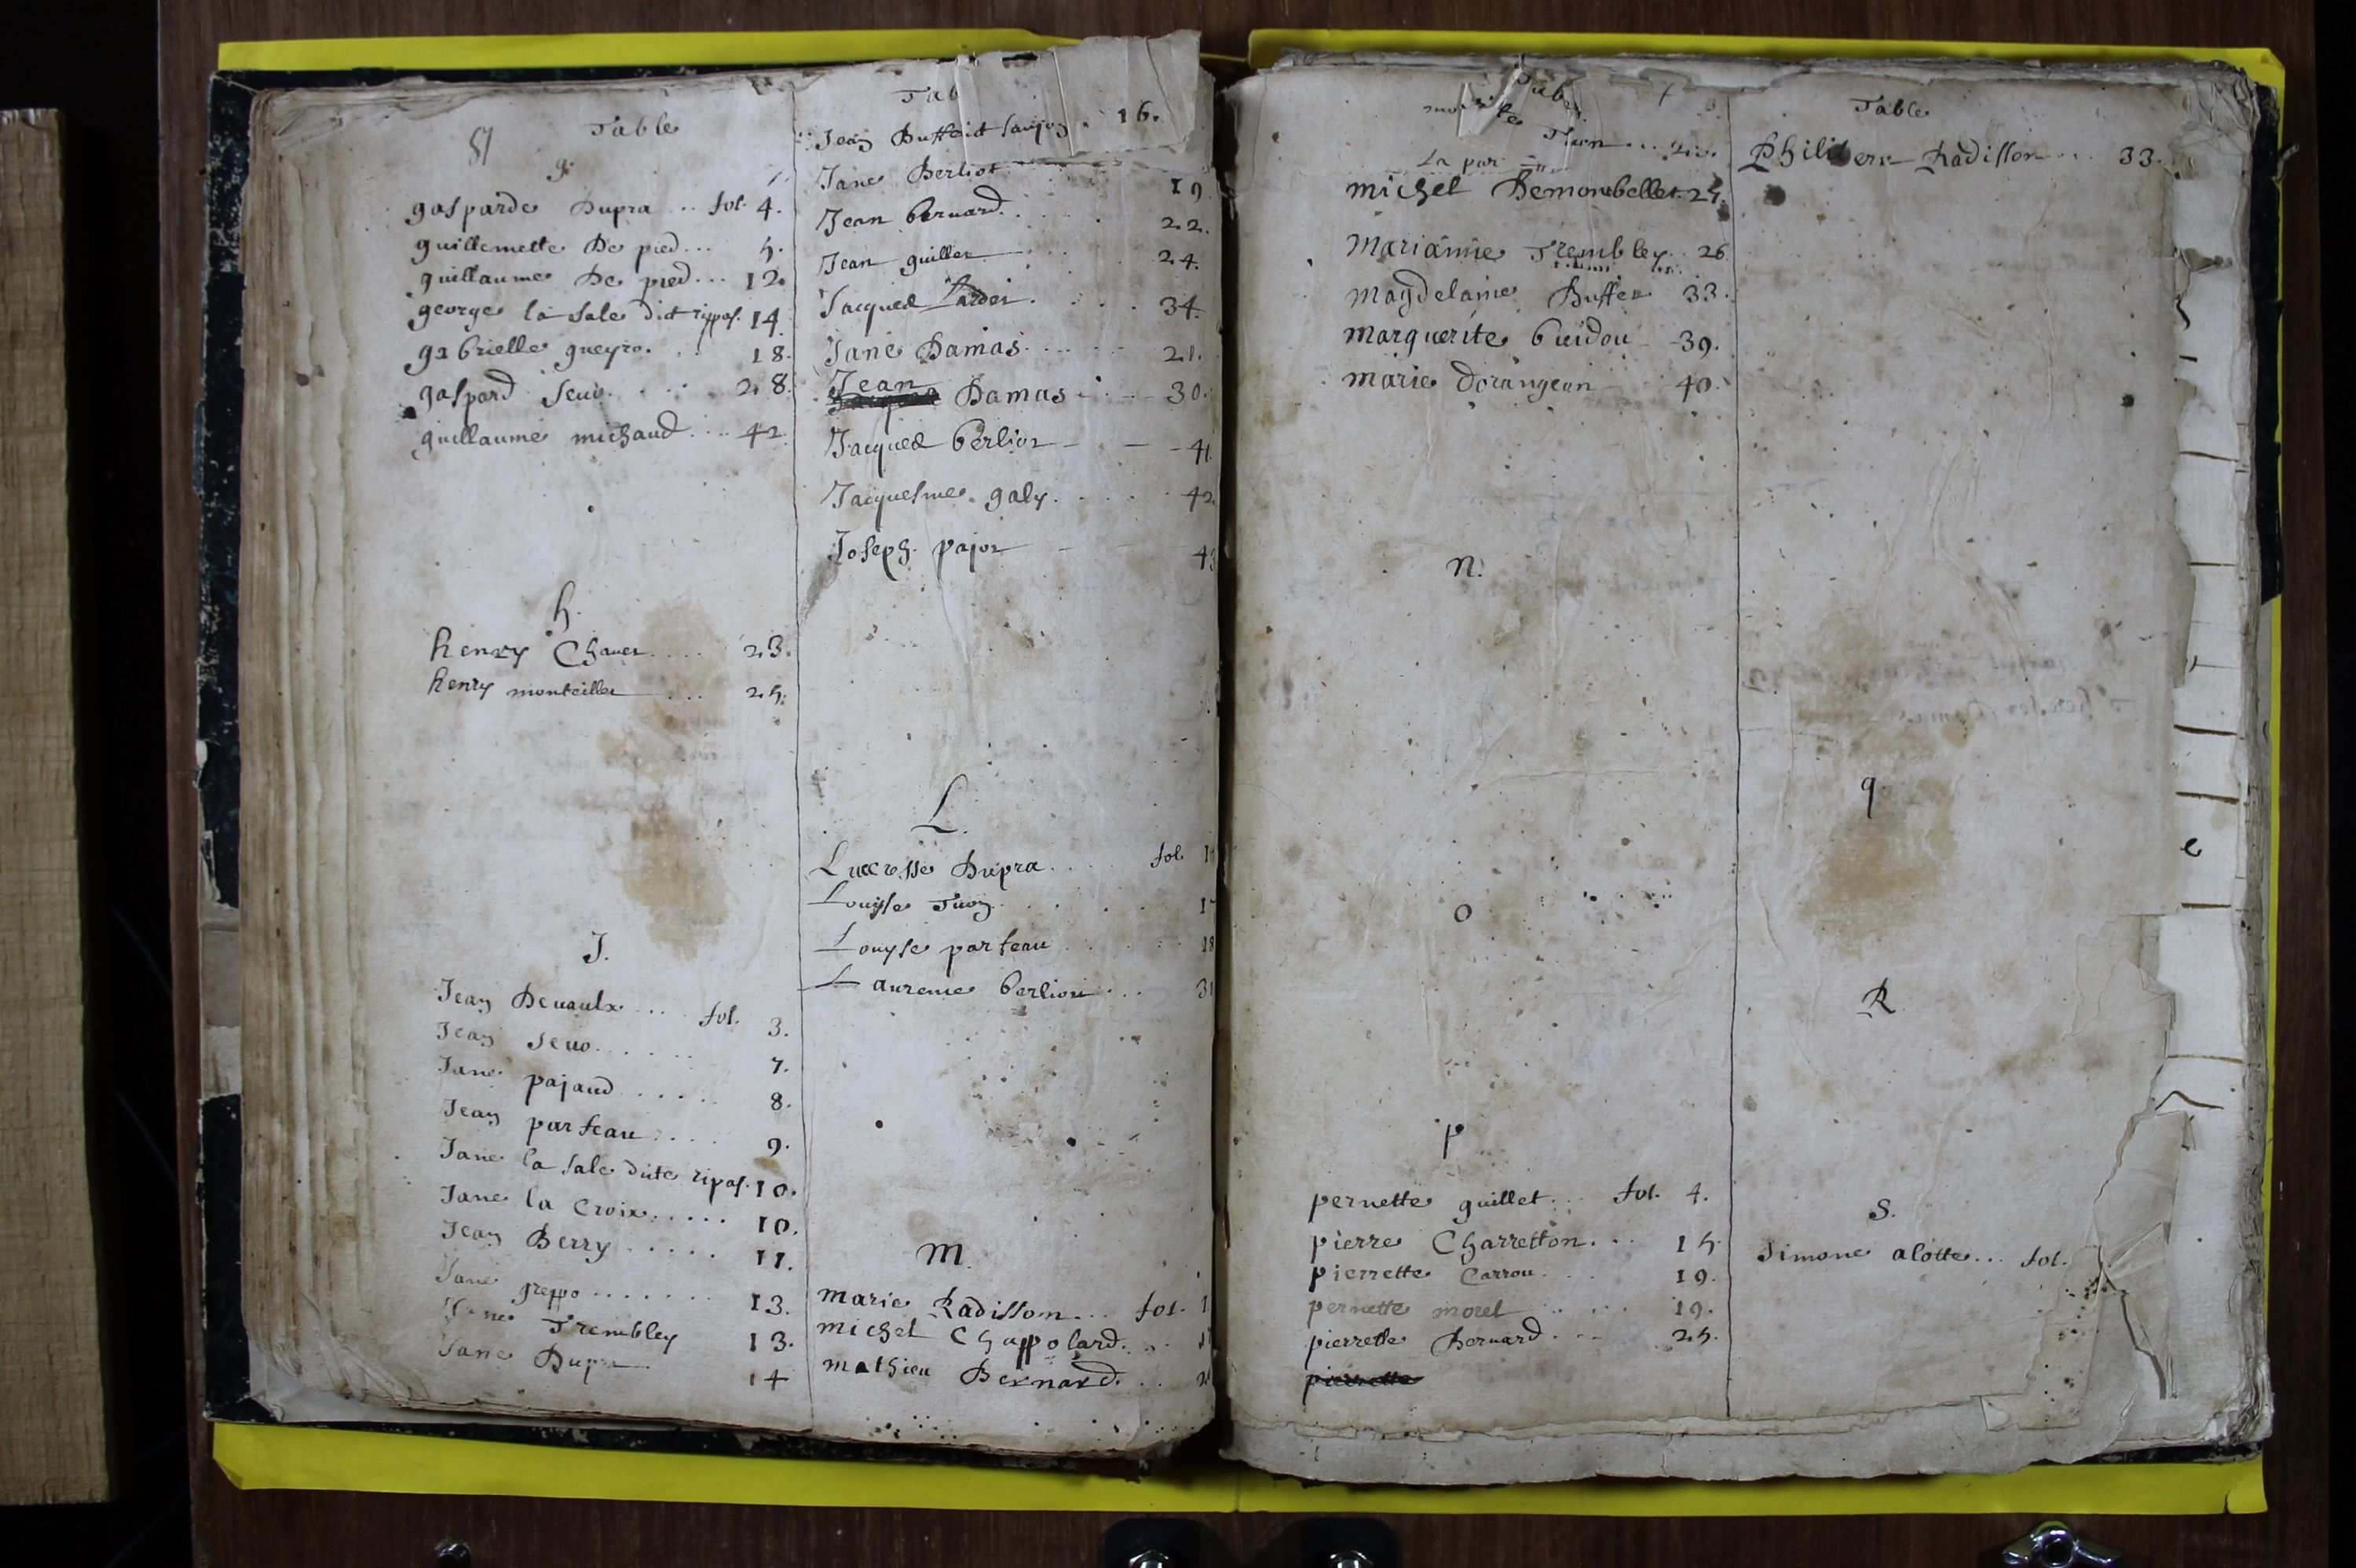 51
Table
g.
gasparde Dupra .. fol. 4.
guillemette De pied... 5.
guillaume De pied... 12.
george la Sale dit ripos. 14.
gabrielle gueyro. . . 18.
gaspard Seuo. . . . 28.
guillaume michaud. . . 42.
h.
henry Chauet.... 23.
henry monteillet ... 25.
J.
Jean Deuaulx.... fol. 3.
Jean Seuo. . . . . 7.
Jane pajaud . . . . . 8.
Jean parteau . . . . 9.
Jane la Sale dite ripos. 10.
Jane la Croix. . . . . 10.
Jean Berry . . . . . 11.
Jane greppo . . . . . . . 13.
Jane Trembley 13.
Jane Dupra 14
Tab
Jean Buffeit 16.
Jane Berliot 19
Jean bernard. . . . . 22.
Jean guillet . . . 24.
Jacques . . . . 34.
Jane Damas. . . . 21.
Jean Damas . . . 30.
Jacques berliot - - - 41.
Jacquesme galy. . . . . 42.
Joseph pajot - - 43
L.
Luccresse Dupra. . . . fol. 1
Louyse Tuon. . . . . 1
Louyse parteau . . . . 18
Laurence berliou . . . 31
m.
marie Radisson... fol. 1
michel Chappolard. . . .
mathieu Bernard. . . 2
Table
La par
michel Demonbellet. 25.
Marianne Trembley.. 26
Magdelaine Buffet 33.
marguerite buidou - 39.
marie Dorangeon 40.
n.
o
p
pernette guillet... fol. 4.
pierre Charretton. . . 15.
pierrette Carrou. . . 19.
pernette morel . . . . 19.
pierrette Bernard. . . 25.
pierrette
Table
Philibert Radisson... 33.
q
R
S.
Simone alotte... fol.